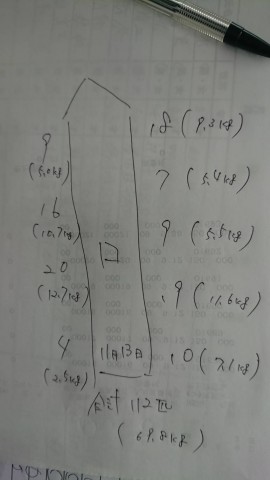 18 (9.3kg)
9
(5.0kg)
7 (5.4kg)
16
(10.7kg)
9 (5.5kg)
20
(12.7kg)
19 (11.6kg)
4
(2.5kg)
11月13日
10 (7.1kg)
合計 112匹
(69.8kg)